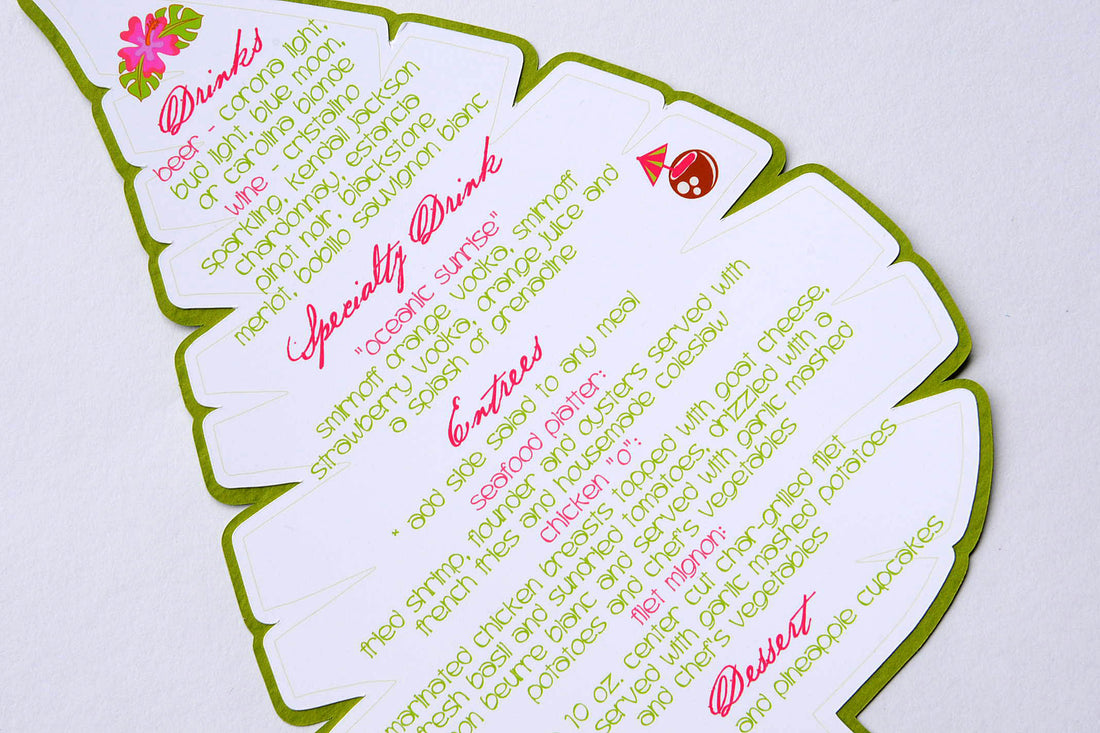 Drinks
beer - corona light,
bud light, blue moon,
or carolina blonde
wine - cristalino
sparkling, kendall jackson
chardonnay, estancia
pinot noir, blackstone
merlot, bobillo sauvignon blanc
Specialty Drink
"oceanic sunrise"
smirnoff orange vodka, smirnoff
strawberry vodka, orange juice and
a splash of grenadine
Entrees
* add side salad to any meal
seafood platter:
fried shrimp, flounder and oysters served with
french fries and housemade coleslaw
chicken "o":
marinated chicken breasts topped with goat cheese,
fresh basil and sundried tomatoes, drizzled with a
beurre blanc and served with garlic mashed
potatoes and chef's vegetables
filet mignon:
10 oz. center cut char-grilled filet
served with garlic mashed potatoes
and chef's vegetables
Dessert
and pineapple cupcakes